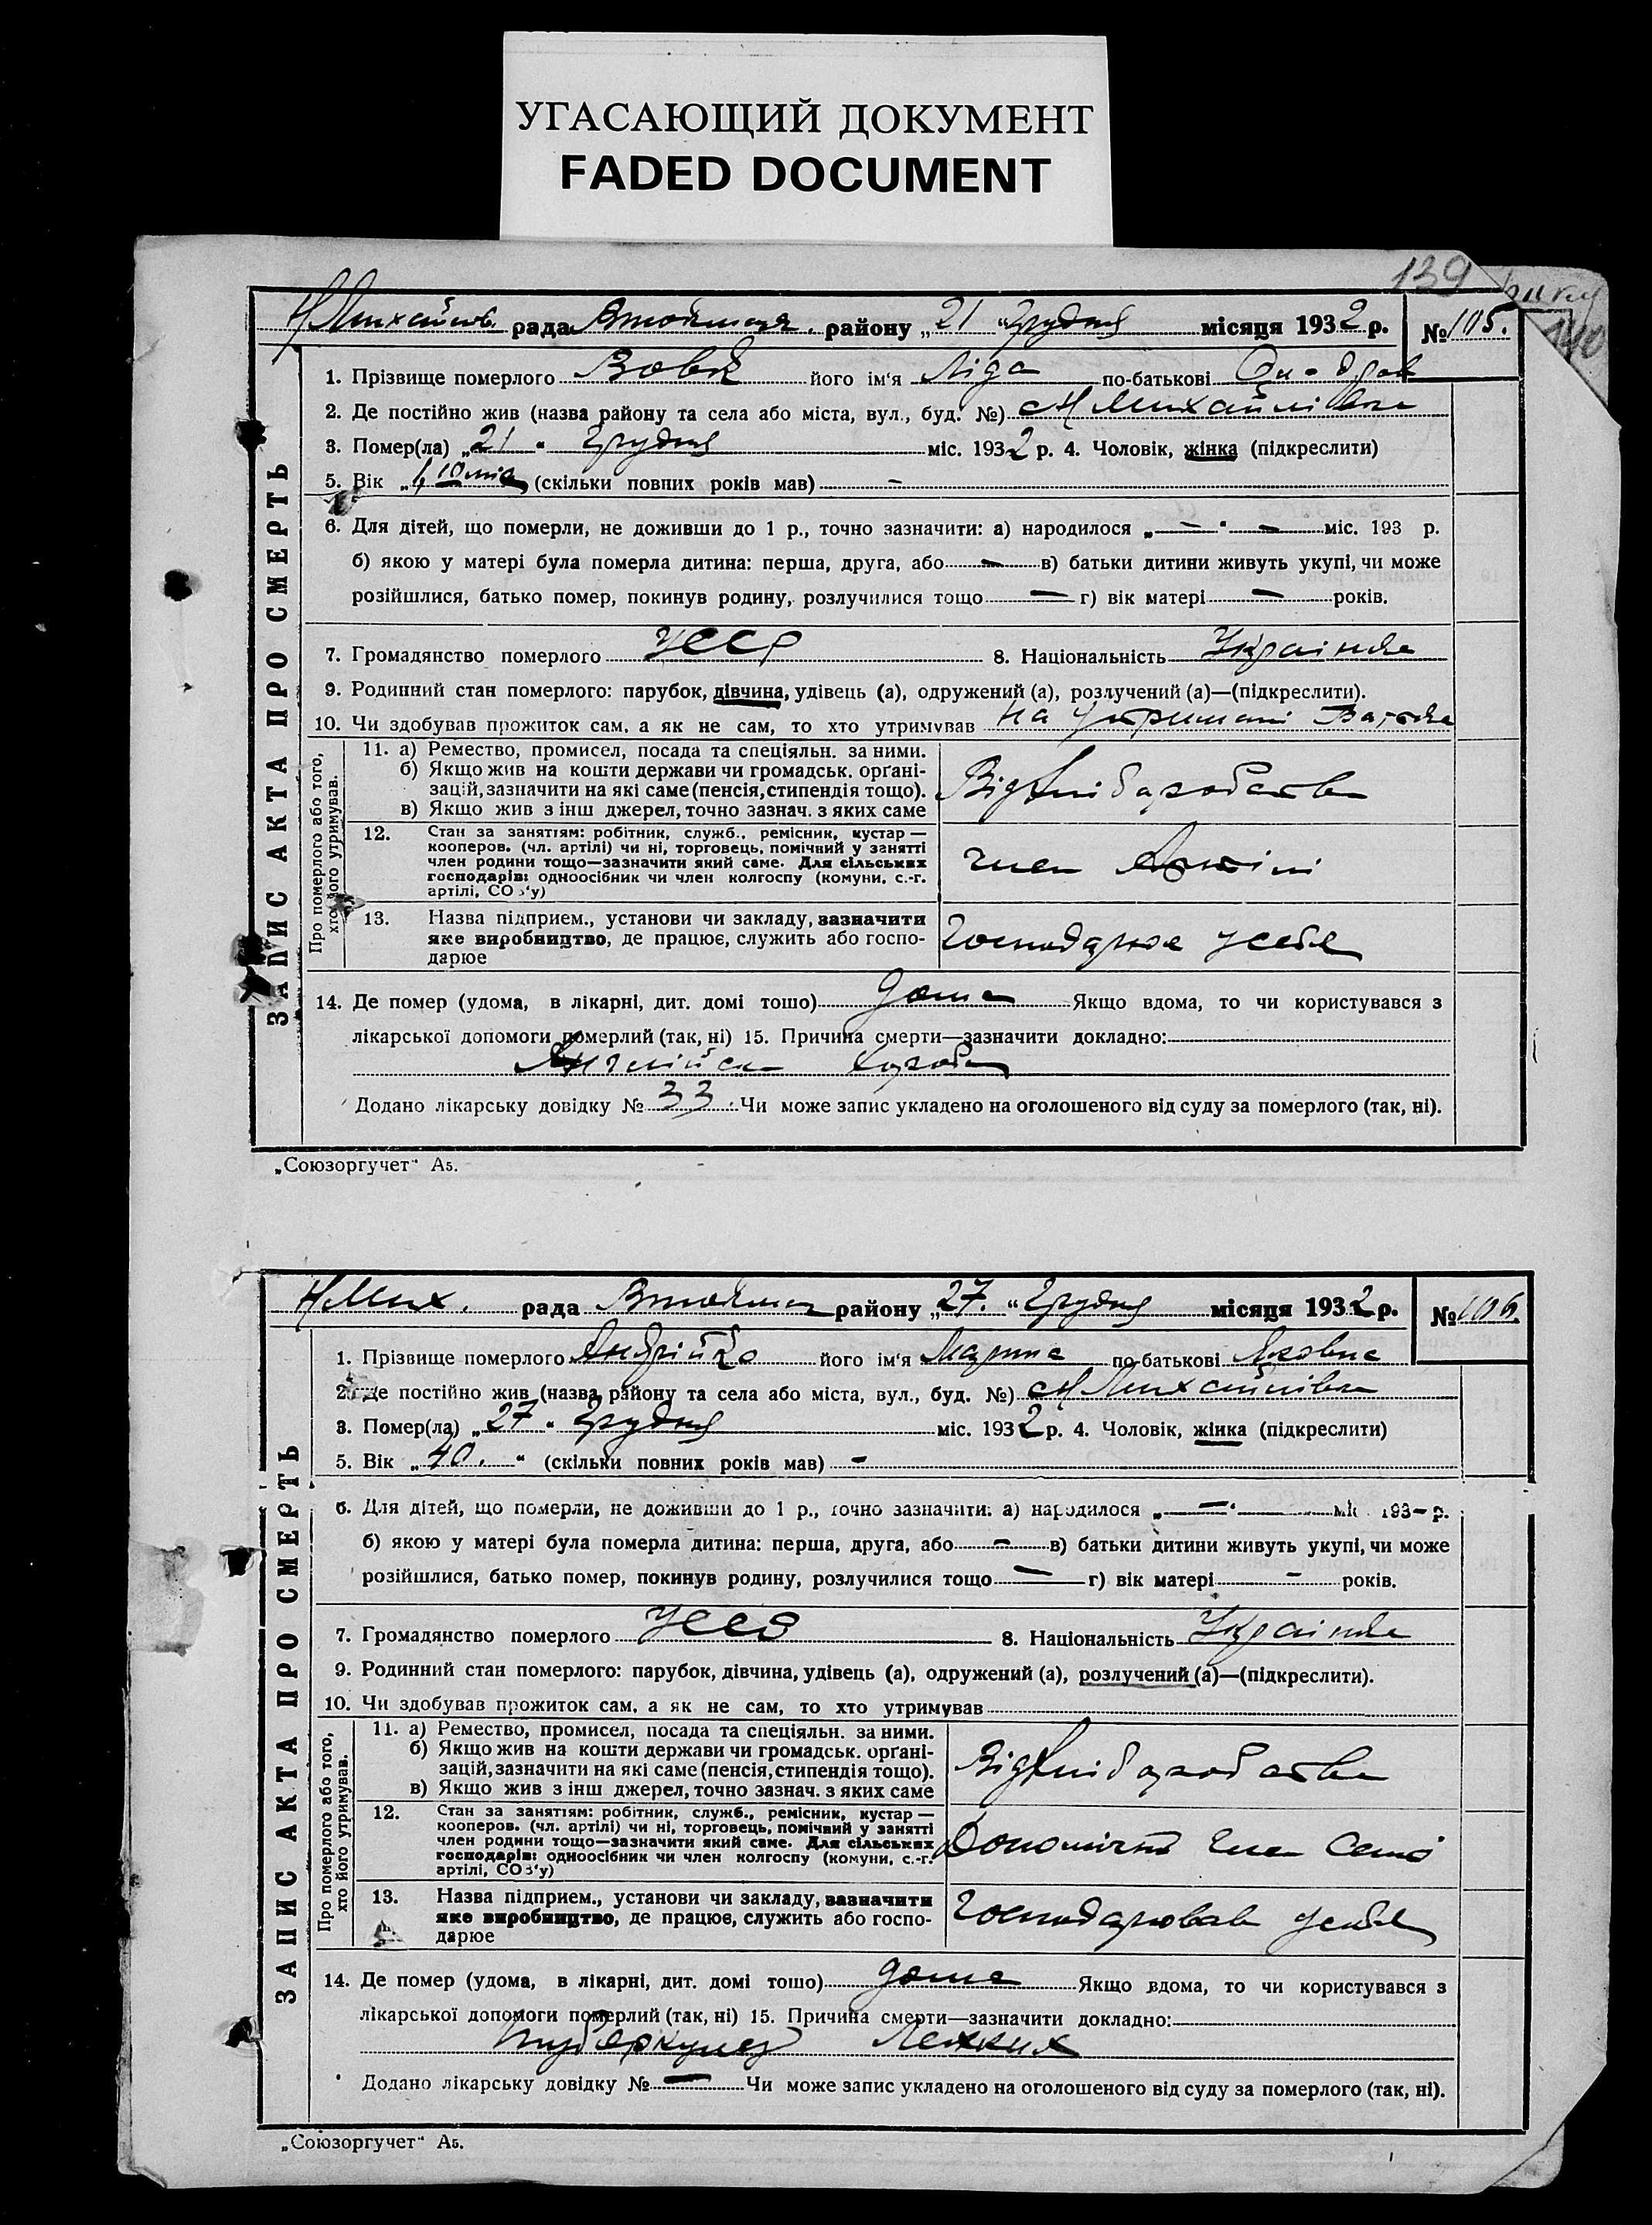 УГАСАЮЩИЙ ДОКУМЕНТ
FADED DOCUMENT
139
140
Н Михайлів. рада району „21 "Грудня місяця 1932 р. № 105.
1. Прізвище померлого Вовк його ім'я Ліда по-батькові
2. Де постійно жив (назва району та села або міста, вул., буд. №) с Н Михайлівка
3. Помер(ла) „21 " Грудня міс. 1932 р. 4. Чоловік, жінка (підкреслити)
5. Вік „ (скільки повних років мав) -
6. Для дітей, що померли, не доживши до 1 р., точно зазначити: а) народилося „—"— міс. 193 р.
б) якою у матері була померла дитина: перша, друга, або — в) батьки дитини живуть укупі, чи може
розійшлися, батько помер, покинув родину, розлучилися тощо — г) вік матері — років.
7. Громадянство померлого УССР 8. Національність Українка
9. Родинний стан померлого: парубок, дівчина, удівець (а), одружений (а), розлучений (а)—(підкреслити).
10. Чи здобував прожиток сам, а як не сам, то хто утримував На утримані Батька
ЗАПИС АКТА ПРО СМЕРТЬ
Про померлого або того,
хто його утримував.
11. а) Ремество, промисел, посада та спеціяльн. за ними.
б) Якщо жив на кошти держави чи громадськ. орґані-
зацій, зазначити на які саме (пенсія, стипендія тощо).
в) Якщо жив з інш джерел, точно зазнач. з яких саме
Від хліборобства
12. Стан за заняттям: робітник, служб., ремісник, кустар —
кооперов. (чл. артілі) чи ні, торговець, помічний у занятті
член родини тощо—зазначити який саме. Для сільських
господарів: одноосібник чи член колгоспу (комуни, с.-г.
артілі, СОЗ'у)
член Артілі
13. Назва підприєм., установи чи закладу, зазначити
яке виробництво, де працює, служить або госпо-
дарює
Господарює усебе
14. Де помер (удома, в лікарні, дит. домі тощо) дома Якщо вдома, то чи користувався з
лікарської допомоги померлий (так, ні) 15. Причина смерти—зазначити докладно:
Англійська хороба
Додано лікарську довідку № 33 Чи може запис укладено на оголошеного від суду за померлого (так, ні).
„Союзоргучет" А5.
Н Мих. рада району „27. " Грудня місяця 1932 р. № 106.
1. Прізвище померлого Андрійко його ім'я Марина по-батькові Яковна
2. Де постійно жив (назва району та села або міста, вул., буд. №) с Н Михайлівка
3. Помер(ла) „27 " Грудня міс. 1932 р. 4. Чоловік, жінка (підкреслити)
5. Вік „ 40. " (скільки повних років мав) -
6. Для дітей, що померли, не доживши до 1 р., точно зазначити: а) народилося „—" міс. 193- р.
б) якою у матері була померла дитина: перша, друга, або — в) батьки дитини живуть укупі, чи може
розійшлися, батько помер, покинув родину, розлучилися тощо — г) вік матері - років.
7. Громадянство померлого УССР 8. Національність Українка
9. Родинний стан померлого: парубок, дівчина, удівець (а), одружений (а), розлучений (а)—(підкреслити).
10. Чи здобував прожиток сам, а як не сам, то хто утримував
ЗАПИС АКТА ПРО СМЕРТЬ
Про померлого або того,
хто його утримував.
11. а) Ремество, промисел, посада та спеціяльн. за ними.
б) Якщо жив на кошти держави чи громадськ. орґані-
зацій, зазначити на які саме (пенсія, стипендія тощо).
в) Якщо жив з інш джерел, точно зазнач. з яких саме
Від хліборобства
12. Стан за заняттям: робітник, служб., ремісник, кустар —
кооперов. (чл. артілі) чи ні, торговець, помічний у занятті
член родини тощо—зазначити який саме. Для сільських
господарів: одноосібник чи член колгоспу (комуни, с.-г.
артілі, СОЗ'у)
член
13. Назва підприєм., установи чи закладу, зазначити
яке виробництво, де працює, служить або госпо-
дарює
Господарював усебе
14. Де помер (удома, в лікарні, дит. домі тощо) дома Якщо вдома, то чи користувався з
лікарської допомоги померлий (так, ні) 15. Причина смерти—зазначити докладно:
туберкульоз Легких
Додано лікарську довідку № — Чи може запис укладено на оголошеного від суду за померлого (так, ні).
„Союзоргучет" А5.